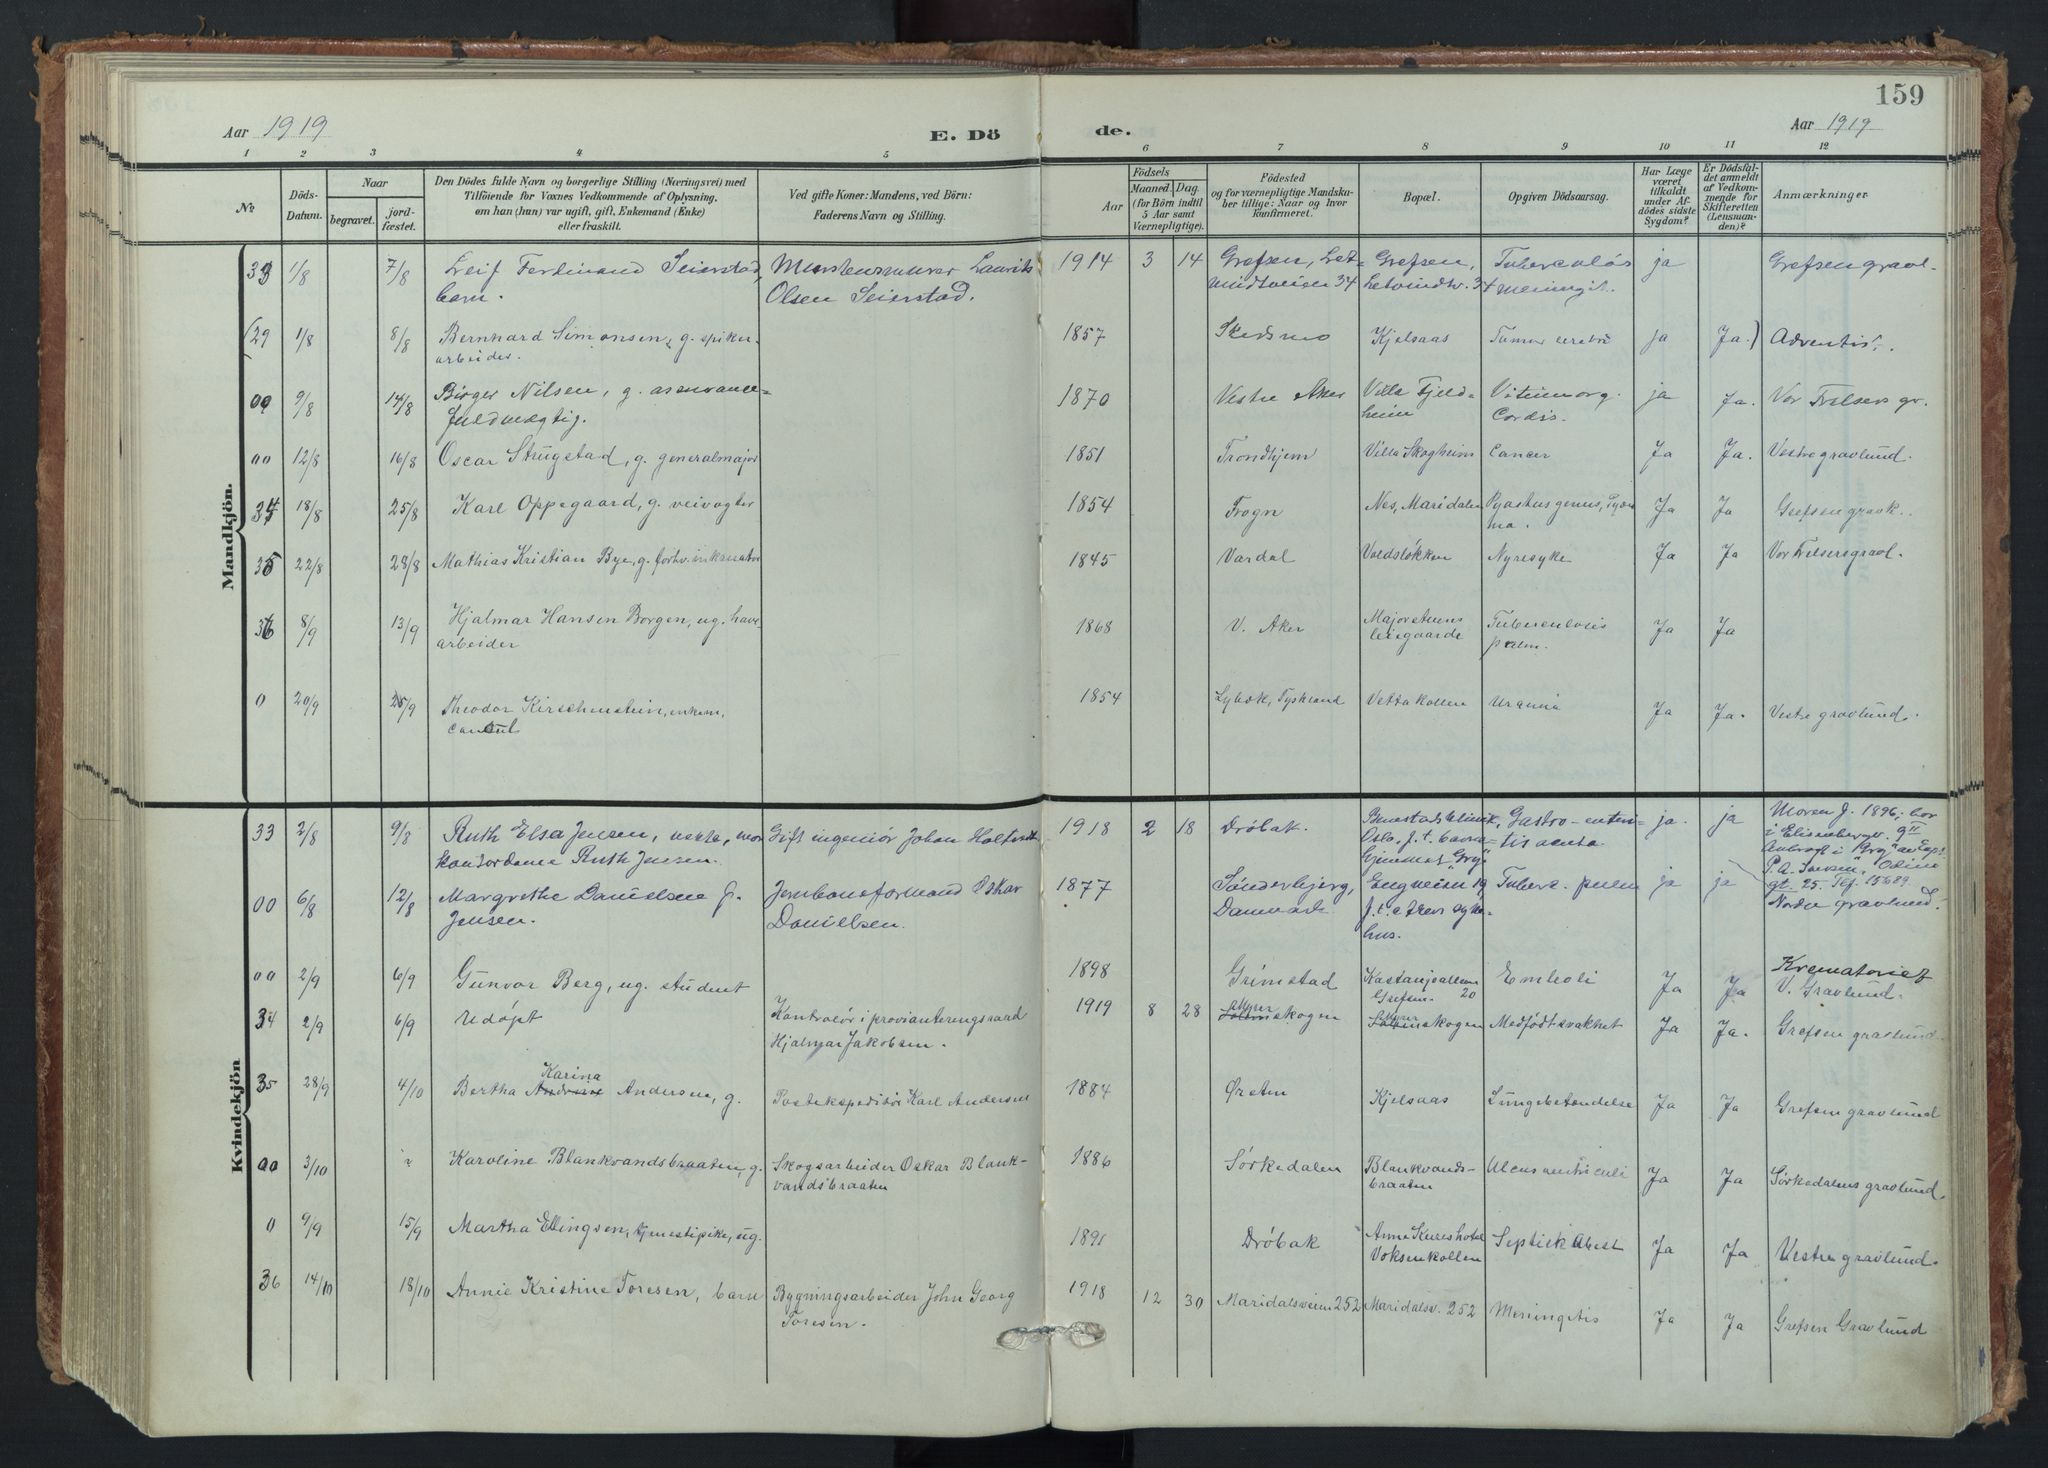 159
Aar 1919
E. Dö
de.
Aar 1919
1 2 3 4 5 6 7 8 9 10 11 12
No
Döds-
Datum.
Naar
begravet.
jord-
fæstet.
Den Dödes fulde Navn og borgerlige Stilling (Næringsvei) med
Tilföiende for Voxnes Vedkommende af Oplysning,
om han (hun) var ugift, gift, Enkemand (Enke)
eller fraskilt.
Ved gifte Koner: Mandens, ved Börn:
Faderens Navn og Stilling.
Födsels
Aar
Maaned.
Dag.
(for Börn indtil
5 Aar samt
Værnepligtige).
Födested
og for værnepligtige Mandska-
ber tillige: Naar og hvor
konfirmeret.
Bopæl.
Opgiven Dödsaarsag.
Har Læge
været
tilkaldt
under Af-
dödes sidste
Sygdom?
Er Dödsfal-
det anmeldt
af Vedkom-
mende for
Skifteretten
(Lensman-
den)?
Anmærkninger
Mandkjön.
33 1/8 7/8 Leif Ferdinand Seierstad, Laurits 1914 3 14 Grefsen, Grefsen, Tuberculøs ja Grefsen gravl.
barn. Olsen Seierstad. 34 34 meningit.
(29 1/8 8/8 Bernhard Simonsen, g. spiker- 1857 Skedsmo Kjelsaas Tumor cerebri ja Ja.) Adventist.
arbeider.
00 9/8 14/8 Birger Nilsen, g. assurance- 1870 Vestre Aker Villa Fjeld- Vitium org. ja Ja. Vor Frelsers gr.
fuldmegtig. heim Cordis.
00 12/8 16/8 Oscar Strugstad, g. generalmajor 1851 Trondhjem Villa Skogheim Cancer Ja Ja. Vestre gravlund.
34 18/8 25/8 Karl Oppegaard, g. veivogter 1854 Frogn Nes, Maridalen Ja Ja Grefsen gravl.
35 22/8 28/8 Mathias Kristian Bye, g. forhv. inkassator 1845 Vardal Voldsløkken Nyresyke Ja Ja Vor Frelsersgravl.
36 8/9 13/9 Hjalmar Hansen Borgen, ug. have- 1868 V. Aker Majorstuens Tuberculosis Ja Ja
arbeider leiegaarde pulm.
0 20/9 25/9 Theodor Kirschenstein, enkem. 1854 Lybæk, Tyskland Vettakollen Uræmia Ja Ja. Vestre gravlund.
consul
Kvindekjön
33 2/8 9/8 Ruth Elsa Jensen, uekte, mor Gift ingeniør Johan 1918 2 18 Drøbak. Gastro-enteri- ja. ja Moren f. 1896, bor
kontordame Ruth Jensen. Oslo, f.t. tis acuta i Elisenbergv. 9 II
P. A. Larsen, Odins
gt. 25. Tlf. 15689
00 6/8 12/8 Margrethe Danielsen f. Jernbaneformand Oskar 1877 Sønderbjerg, Engveien 19, Tuberc. pulm ja ja Nordre gravlund.
Jensen. Danielsen. Danmark f.t. syke-
hus.
00 2/9 6/9 Gunvor Berg, ug. student 1898 Grimstad Kastanjealleen Emboli Ja Ja Krematoriet
Grefsen 20 V. Gravlund.
34 2/9 6/9 Udøpt Kontrolør i provianteringsraad 1919 8 28 Myrerskogen Myrerskogen Medfødt svakhet Ja Ja. Grefsen gravlund.
Hjalmar Jakobsen.
Karina
35 28/9 4/10 Bertha Andrine Andersen, g. Postekspeditør Karl Andersen 1884 Kjelsaas Lungebetændelse Ja Ja Grefsen gravlund
00 3/10 ? Karoline Blankvandsbraaten, g. Skogsarbeider Oskar Blank- 1886 Sørkedalen Blankvands- Ulcus ventriculi Ja Ja Sørkedalens gravlund.
vandsbraaten braaten
0 9/9 15/9 Martha Ellingsen, tjenestepike, ug. 1891 Drøbak Anne Kureshotel Septisk Abort Ja Ja Vestre gravlund.
Voksenkollen
36 14/10 18/10 Annie Kristine Toresen, barn Bygningsarbeider John Georg 1918 12 30 Maridalsveien 252 Maridalsv. 252 Meningitis Ja Ja Grefsen Gravlund
Toresen.